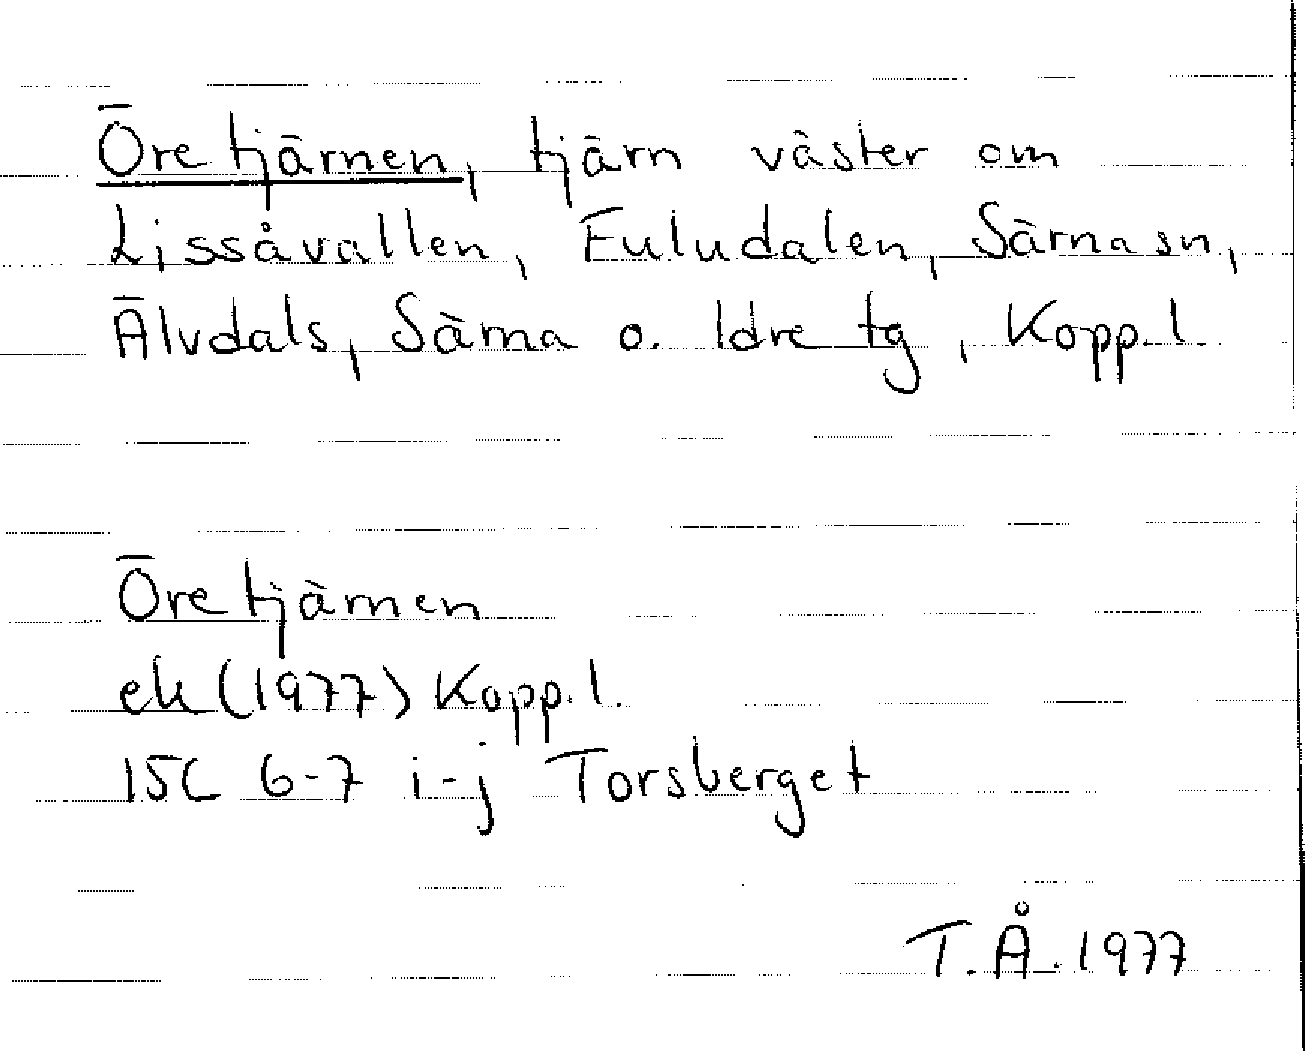 Öretjärnen, tjärn väster om
Lissåvallen, Fuludalen, Särna sn,
Älvdals, Särna o. Idre tg, Kopp. l.
Öretjärnen
ek (1977) Kopp. l.
15C 6-7 i-j Torsberget
T.Å. 1977